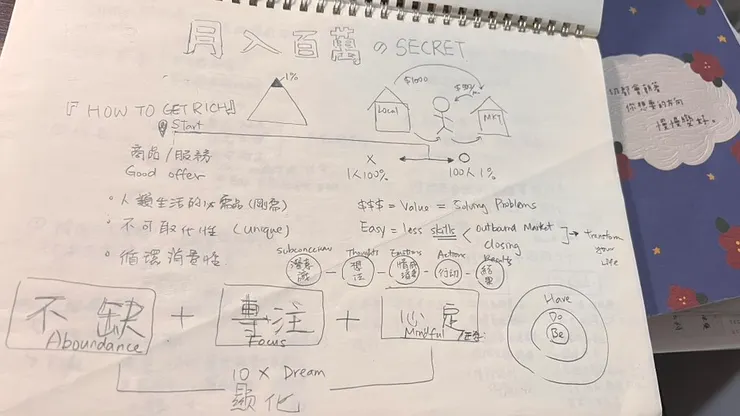 月入百萬の SECRET
1%
『HOW TO GET RICH』
Start
$1000
Local
MKT
商品/服務
Good offer
X
1人100%
O
100人1%
• 人類生活的必需品(剛需)
• 不可取代性 (unique)
• 循環消費性
$$$ = Value = Solving Problems
Easy = less skills < outbound Market
closing
→ Transform your Life
Thoughts
Emotions
Actions
Results
潛意識
想法
情緒
行動
結果
不缺
Aboundance
+
專注
Focus
+
心定
Mindful
10 X Dream
顯化
Have
Do
Be
你想要的方向
慢慢變好。